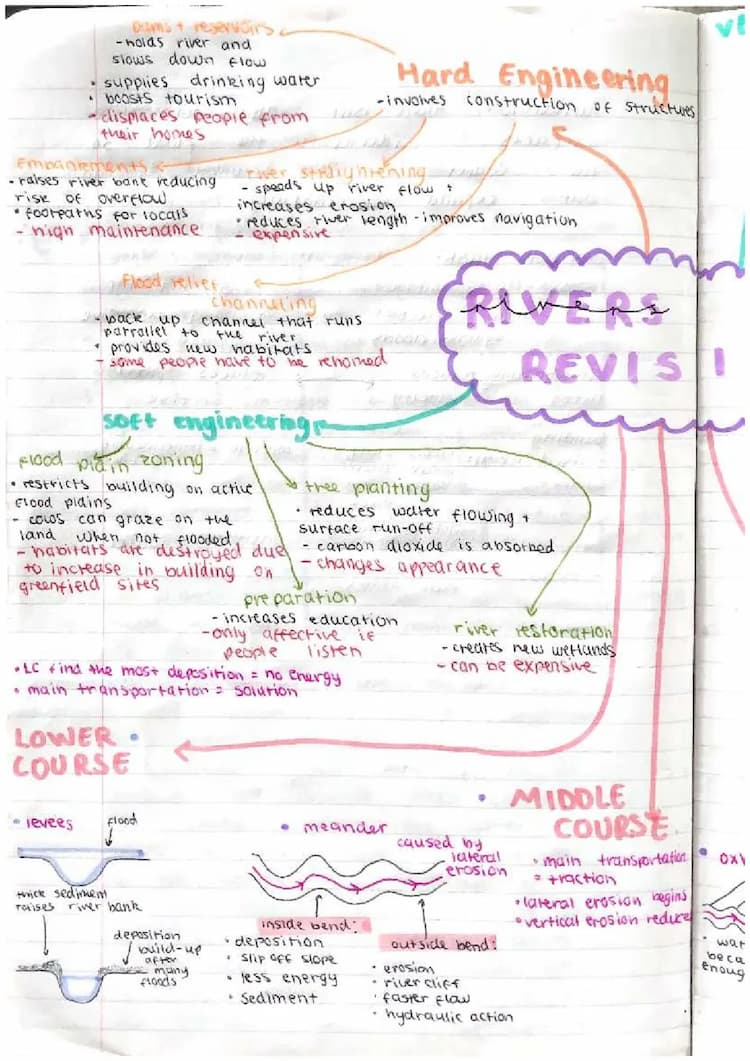 Dams + reservoirs
- holds river and
slows down flow
• supplies drinking water
• boosts tourism
- displaces people from
their homes
Hard Engineering
- involves construction of structures
Embankments
• raises river bank reducing
risk of overflow
• footpaths for locals
- high maintenance
river straightening
- speeds up river flow +
increases erosion
• reduces river length - improves navigation
- expensive
Flood relief
channeling
- back up channel that runs
parrallel to the river
• provides new habitats
- some people have to be rehomed
RIVERS
rivers
REVISI
soft engineering
flood plain zoning
• restricts building on active
flood plains
- cows can graze on the
land when not flooded
- habitats are destroyed due
to increase in building on
greenfield sites
tree planting
• reduces water flowing +
surface run-off
- carbon dioxide is absorbed
- changes appearance
preparation
- increases education
- only affective if
people listen
river restoration
- creates new wetlands
- can be expensive
• LC find the most deposition = no energy
• main transportation = solution
LOWER •
COURSE
• levees
flood
thick sediment
raises river bank
deposition
build-up
after
many
floods
• meander
caused by
lateral
erosion
inside bend:
• deposition
• slip off slope
• less energy
• sediment
outside bend:
• erosion
• river cliff
• faster flow
• hydraulic action
• MIDDLE
COURSE
• main transportation
= traction
• lateral erosion begins
• vertical erosion reduce
• wat
beca
enoug